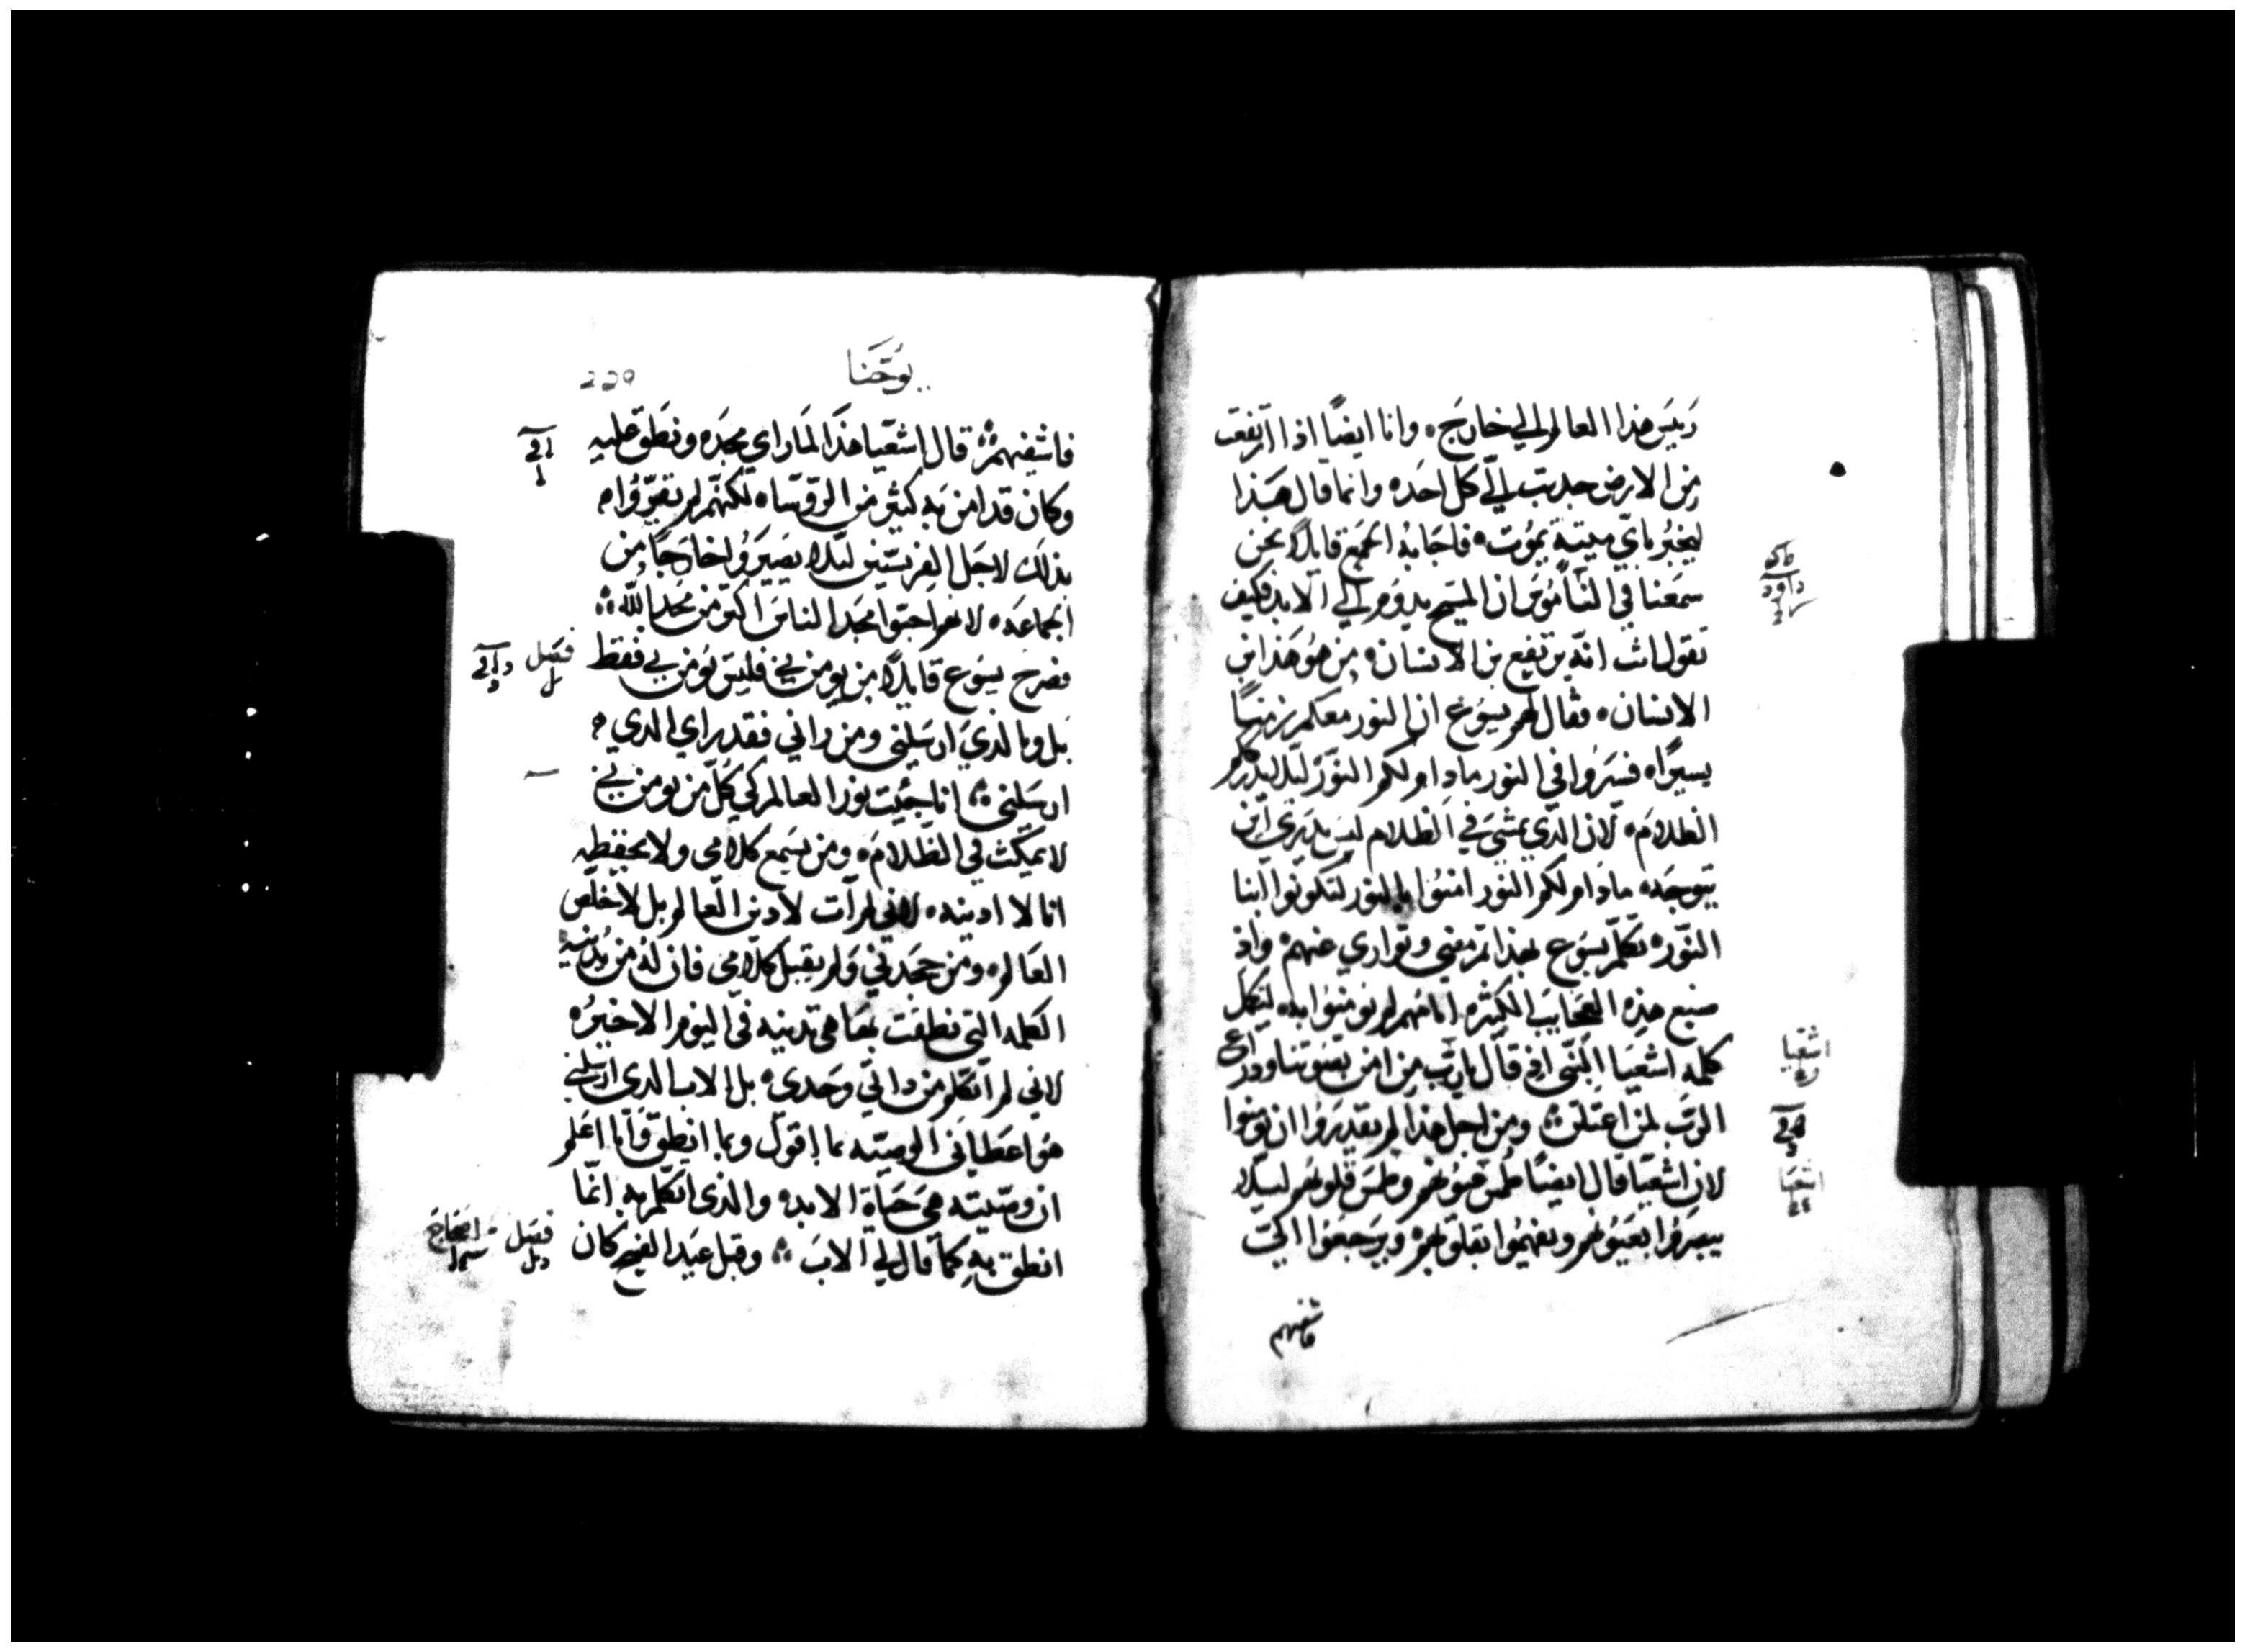 رييس هذا العالم الي خارج. وانا ايضًا اذا ارتفعت
من الارض جدبت الي كل احد ه وانما قال هذا
ليخبر باي ميتة يموت ه فاجابه الجمع قايلاً نحن
سمعنا في الناموس ان المسيح يدوم الي الابد فكيف
تقول انت انه يرتفع بن الانسان ه من هو هذا ابن
الانسان ه فقال لهم يسوع ان النور معكم زمنيًا
يسيرًا ه فسيروا في النور ما دام لكم النور ليلا يدرككم
الظلام ه لان الدي يمشي في الظلام ليس يدري اين
يتوجه ه ما دام لكم النور امنوا بالنور لتكونوا ابنا
النور ه تكلم يسوع بهذا ثم مضي وتواري عنهم ه واذ
صنع هذه العجايب الكثيره امامهم لم يومنوا به ه لتكمل
كلمه اشعيا النبي اذ قال يا رب من امن بصوتنا ودراع
الرب لمن اعتلن ؞ ومن اجل هذا لم يقدروا ان يومنوا
لان اشعيا قال ايضًا طمس عيونهم وطمس قلوبهم ليلا
يبصروا بعيونهم ويفهموا بقلوبهم ه ويرجعوا الي
فاشفيهم
داود
اشعيا
اشعيا
يوحنا
فاشفيهم ؞ قال اشعيا هذا لما راي مجده ونطق عليه
وكان قد امن به كثير من الروسا ه لكنهم لم يقروا ه
بذلك لاجل الفريسيين ليلا يصيروا خارجًا من
الجماعه ه لانهم احبوا مجد الناس اكثر من مجد الله ؞
فصرح يسوع قايلاً من يومن بي فليس يومن بي فقط
بل وبالذي ارسلني ومن راني فقد راي الدي ه
ارسلني ؞ انا جيت نور العالم كي كل من يومن بي
لا يمكث في الظلام ه ومن يسمع كلامي ولا يحفظه
انا لا ادينه ه لاني لم ات لادين العالم بل لاخلص
العالم ه ومن جحدني ولم يقبل كلامي فان له من يدينه
الكلمه التي نطقت بها هي تدينه في اليوم الاخير ه
لاني لم اتكلم من داتي وحدي ه بل الاب الدي ارسلني
هو اعطاني الوصيه بما اقول وبما انطق وانا اعلم
ان وصيته هي حياة الابد ه والذي اتكلم به انما
انطق به كما قال لي الاب ؞ وقبل عيد الفصح كان
فصل
فصل